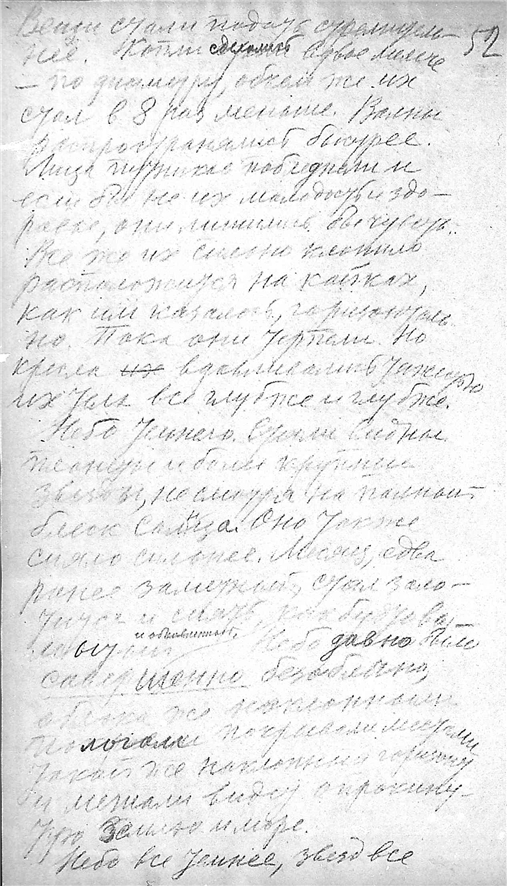 52
Вещи стали падать стремитель-
нее. Капли сделались вдвое мельче
– по диаметру, объем же их
стал в 8 раз меньше. Волны
распространялись быстрее.
Лица путников побледнели и
если бы не их молодость и здо-
ровье, они лишились бы чувств.
Все же их сильно клонило
расположиться на койках,
как им казалось, горизонталь-
но. Пока они терпели. Но
кресла их вдавливались тяжестью
их тела все глубже и глубже.
Небо темнело. Стали видны
планеты и более крупные
звезды, несмотря на полный
блеск Солнца. Оно также
сияло сильнее. Месяц, едва
ранее заметный, стал золо-
тистым и сиять, как будто
и объявиться Небо давно было
совершенно безоблачно,
облака же наклонными
пологами покрывали местами
такой же наклонный горизонт
и мешали виду опрокину-
тую Землю и море.
Небо все темнее, звезд все